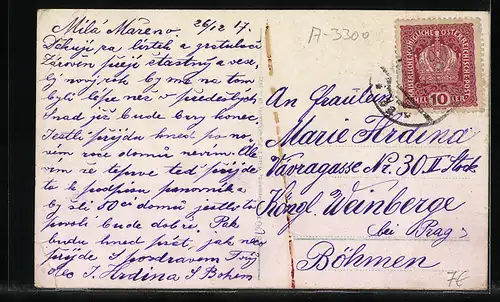 26/12 17.
Milá Mařeno.
Děkuji za lístek a gratulaci
Zároveň přeji šťastný a vese-
lý nový rok by má na tom
byli lépe než v předešlých
Snad již bude brzy konec,
Jestli přijdu hned po no-
vém roce domů nevím. Ale
vím že teprve teď přijde
k podpisu panovníka
by šli 50 domů jestli to
povolí bude dobře. Pak
budu hned psát, jak nec
přijde S pozdravem Tvůj
otec J. Hrdina S Bohem
A-3300
KAISERLICHE KÖNIGLICHE ÖSTERREICHISCHE POST
HELLER 10 HELLER
An Fräulein
Marie Hrdina
Vavragasse Nr. 30 II Stock
Köngl. Weinberge
bei Prag
Böhmen
7€